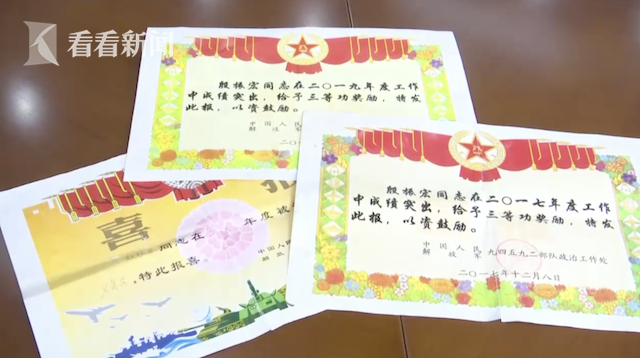 看看新闻
殷振宏同志在二〇一九年度工作
中成绩突出，给予三等功奖励，特发
此报，以资鼓励。
中国人民
解放军
二〇
殷振宏同志在二〇一七年度工作
中成绩突出，给予三等功奖励，特发
此报，以资鼓励。
中国人民
解放军 九四五九二部队政治工作处
二〇一七年十二月八日
喜
同志在 年度被
，特此报喜
中国人民